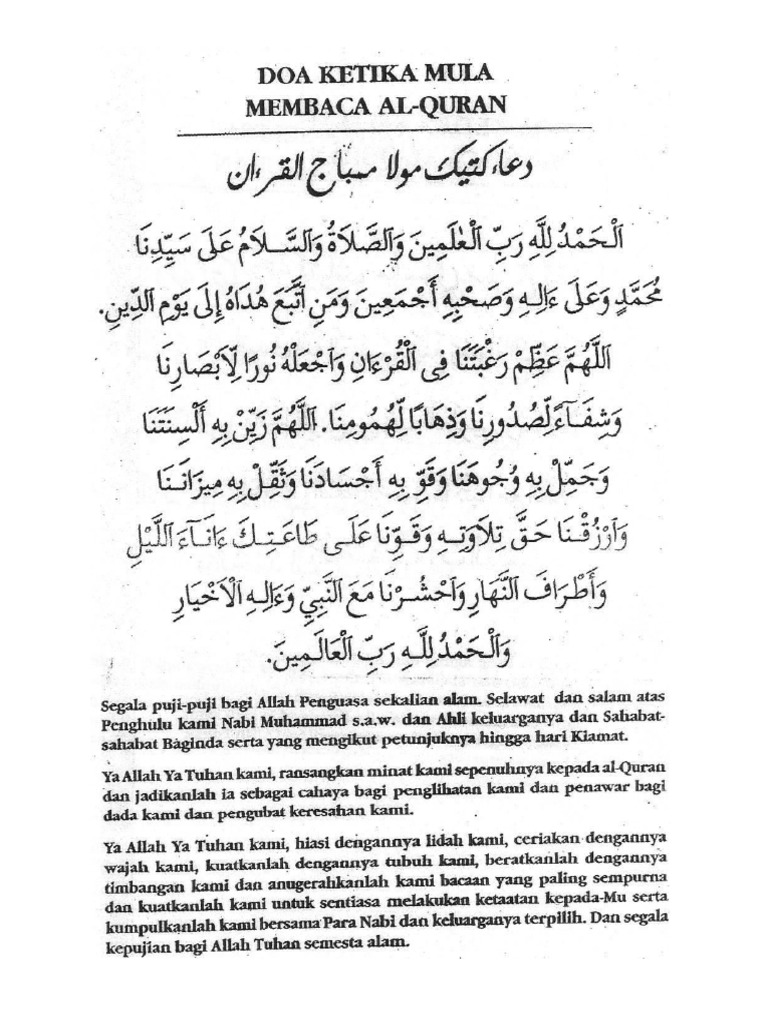 DOA KETIKA MULA
MEMBACA AL-QURAN
دعاء كتيك مولا ممباچ القرءان
اَلْحَمْدُ لِلَّهِ رَبِّ الْعٰلَمِينَ وَالصَّلَاةُ وَالسَّلَامُ عَلَى سَيِّدِنَا
مُحَمَّدٍ وَعَلَى ءَالِهِ وَصَحْبِهِ أَجْمَعِينَ وَمَنِ اتَّبَعَ هُدَاهُ إِلَى يَوْمِ الدِّينِ.
اَللَّهُمَّ عَظِّمْ رَغْبَتَنَا فِى الْقُرْءَانِ وَاجْعَلْهُ نُورًا لِّأَبْصَارِنَا
وَشِفَآءً لِّصُدُورِنَا وَذِهَابًا لِّهُمُومِنَا. اَللَّهُمَّ زَيِّنْ بِهِ أَلْسِنَتَنَا
وَجَمِّلْ بِهِ وُجُوهَنَا وَقَوِّ بِهِ أَجْسَادَنَا وَثَقِّلْ بِهِ مِيزَانَنَا
وَارْزُقْنَا حَقَّ تِلَاوَتِهِ وَقَوِّنَا عَلَى طَاعَتِكَ ءَانَآءَ اللَّيْلِ
وَأَطْرَافَ النَّهَارِ وَاحْشُرْنَا مَعَ النَّبِيِّ وَءَالِهِ الْأَخْيَارِ
وَالْحَمْدُ لِلَّهِ رَبِّ الْعَالَمِينَ.
Segala puji-puji bagi Allah Penguasa sekalian alam. Selawat dan salam atas
Penghulu kami Nabi Muhammad s.a.w. dan Ahli keluarganya dan Sahabat-
sahabat Baginda serta yang mengikut petunjuknya hingga hari Kiamat.
Ya Allah Ya Tuhan kami, ransangkan minat kami sepenuhnya kepada al-Quran
dan jadikanlah ia sebagai cahaya bagi penglihatan kami dan penawar bagi
dada kami dan pengubat keresahan kami.
Ya Allah Ya Tuhan kami, hiasi dengannya lidah kami, ceriakan dengannya
wajah kami, kuatkanlah dengannya tubuh kami, beratkanlah dengannya
timbangan kami dan anugerahkanlah kami bacaan yang paling sempurna
dan kuatkanlah kami untuk sentiasa melakukan ketaatan kepada-Mu serta
kumpulkanlah kami bersama Para Nabi dan keluarganya terpilih. Dan segala
kepujian bagi Allah Tuhan semesta alam.